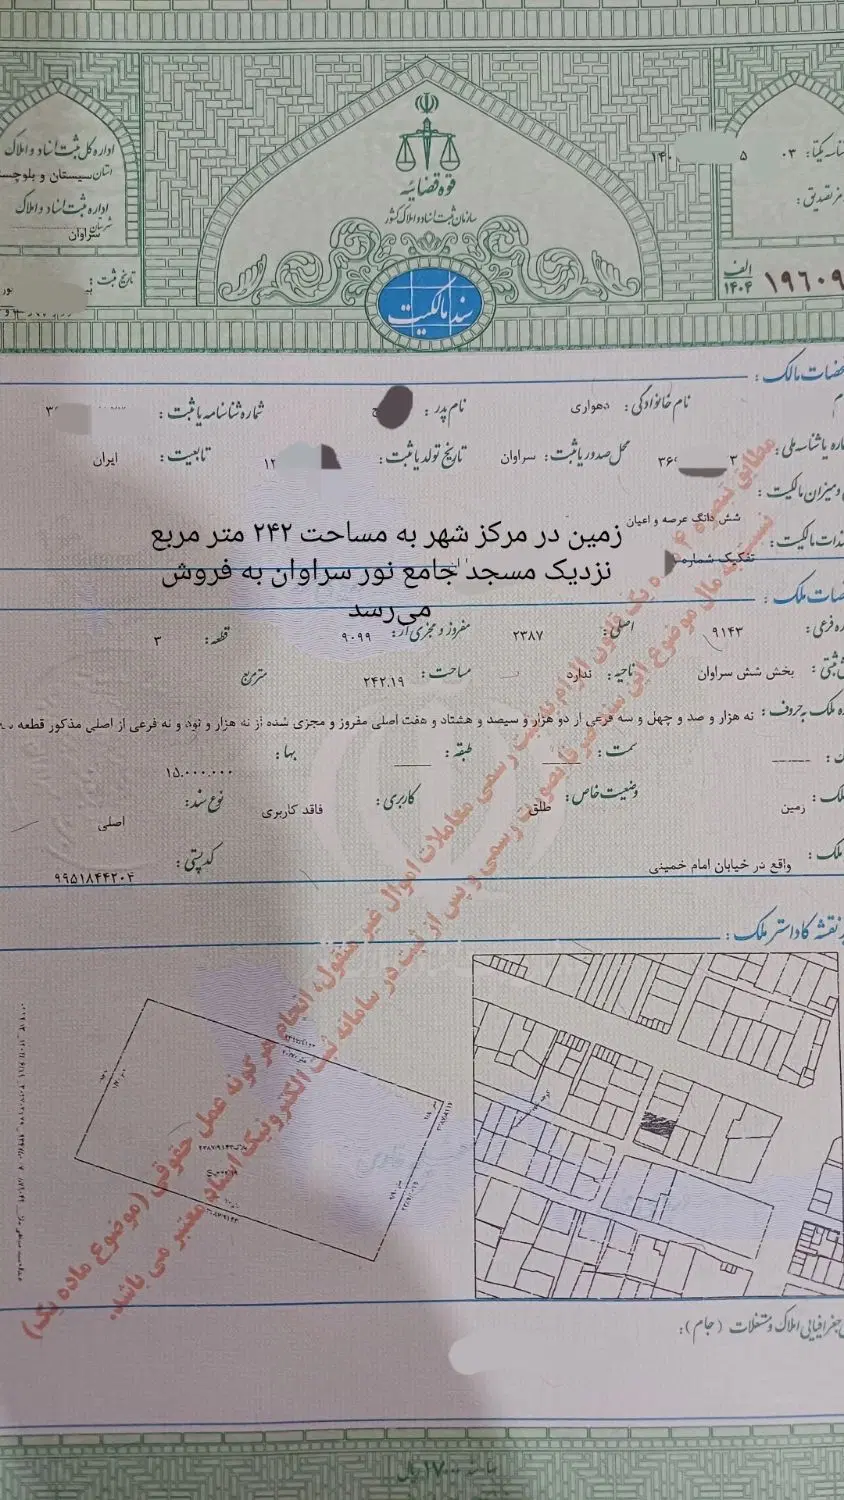 اداره کل ثبت اسناد و املاک
استان سیستان و بلوچستان
اداره ثبت اسناد و املاک
شهرستان سراوان
تاریخ ثبت :
قوه قضائیه
سازمان ثبت اسناد و املاک کشور
سند مالکیت
الف
۱۴۰۴
۱۹۶۰۹
نام خانوادگی : دهواری
نام پدر :
شماره شناسنامه یا ثبت :
محل صدور یا ثبت : سراوان
تاریخ تولد یا ثبت :
تابعیت : ایران
و میزان مالکیت :
شش دانگ عرصه و اعیان
تفکیک شماره
زمین در مرکز شهر به مساحت ۲۴۲ متر مربع
نزدیک مسجد جامع نور سراوان به فروش
می‌رسد
۹۱۴۳ اصلی : ۲۳۸۷ مفروز و مجزی از : ۹۰۹۹ قطعه : ۳
بخش شش سراوان ناحیه : ندارد مساحت : ۲۴۲.۱۹ متر مربع
ملک به حروف : نه هزار و صد و چهل و سه فرعی از دو هزار و سیصد و هشتاد و هفت اصلی مفروز و مجزی شده از نه هزار و نود و نه فرعی از اصلی مذکور قطعه
سمت : طبقه : بها : ۱۵.۰۰۰.۰۰۰
زمین وضعیت خاص : طلق کاربری : فاقد کاربری نوع سند : اصلی
واقع در خیابان امام خمینی کد پستی : ۹۹۵۱۸۴۴۲۰۴
نقشه کاداستر ملک :
مطابق تبصره ۴ ماده یک قانون الزام به ثبت رسمی معاملات اموال غیر منقول، انجام هر گونه عمل حقوقی (موضوع ماده یک)
نسبت به مال موضوع این سند صرفا بصورت رسمی و پس از ثبت در سامانه ثبت الکترونیک اسناد معتبر می باشد.
جغرافیایی املاک و مستغلات (جام):